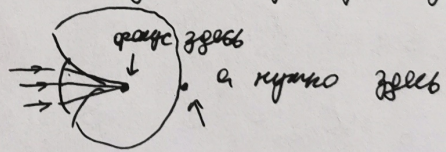 фокус здесь
а нужно здесь